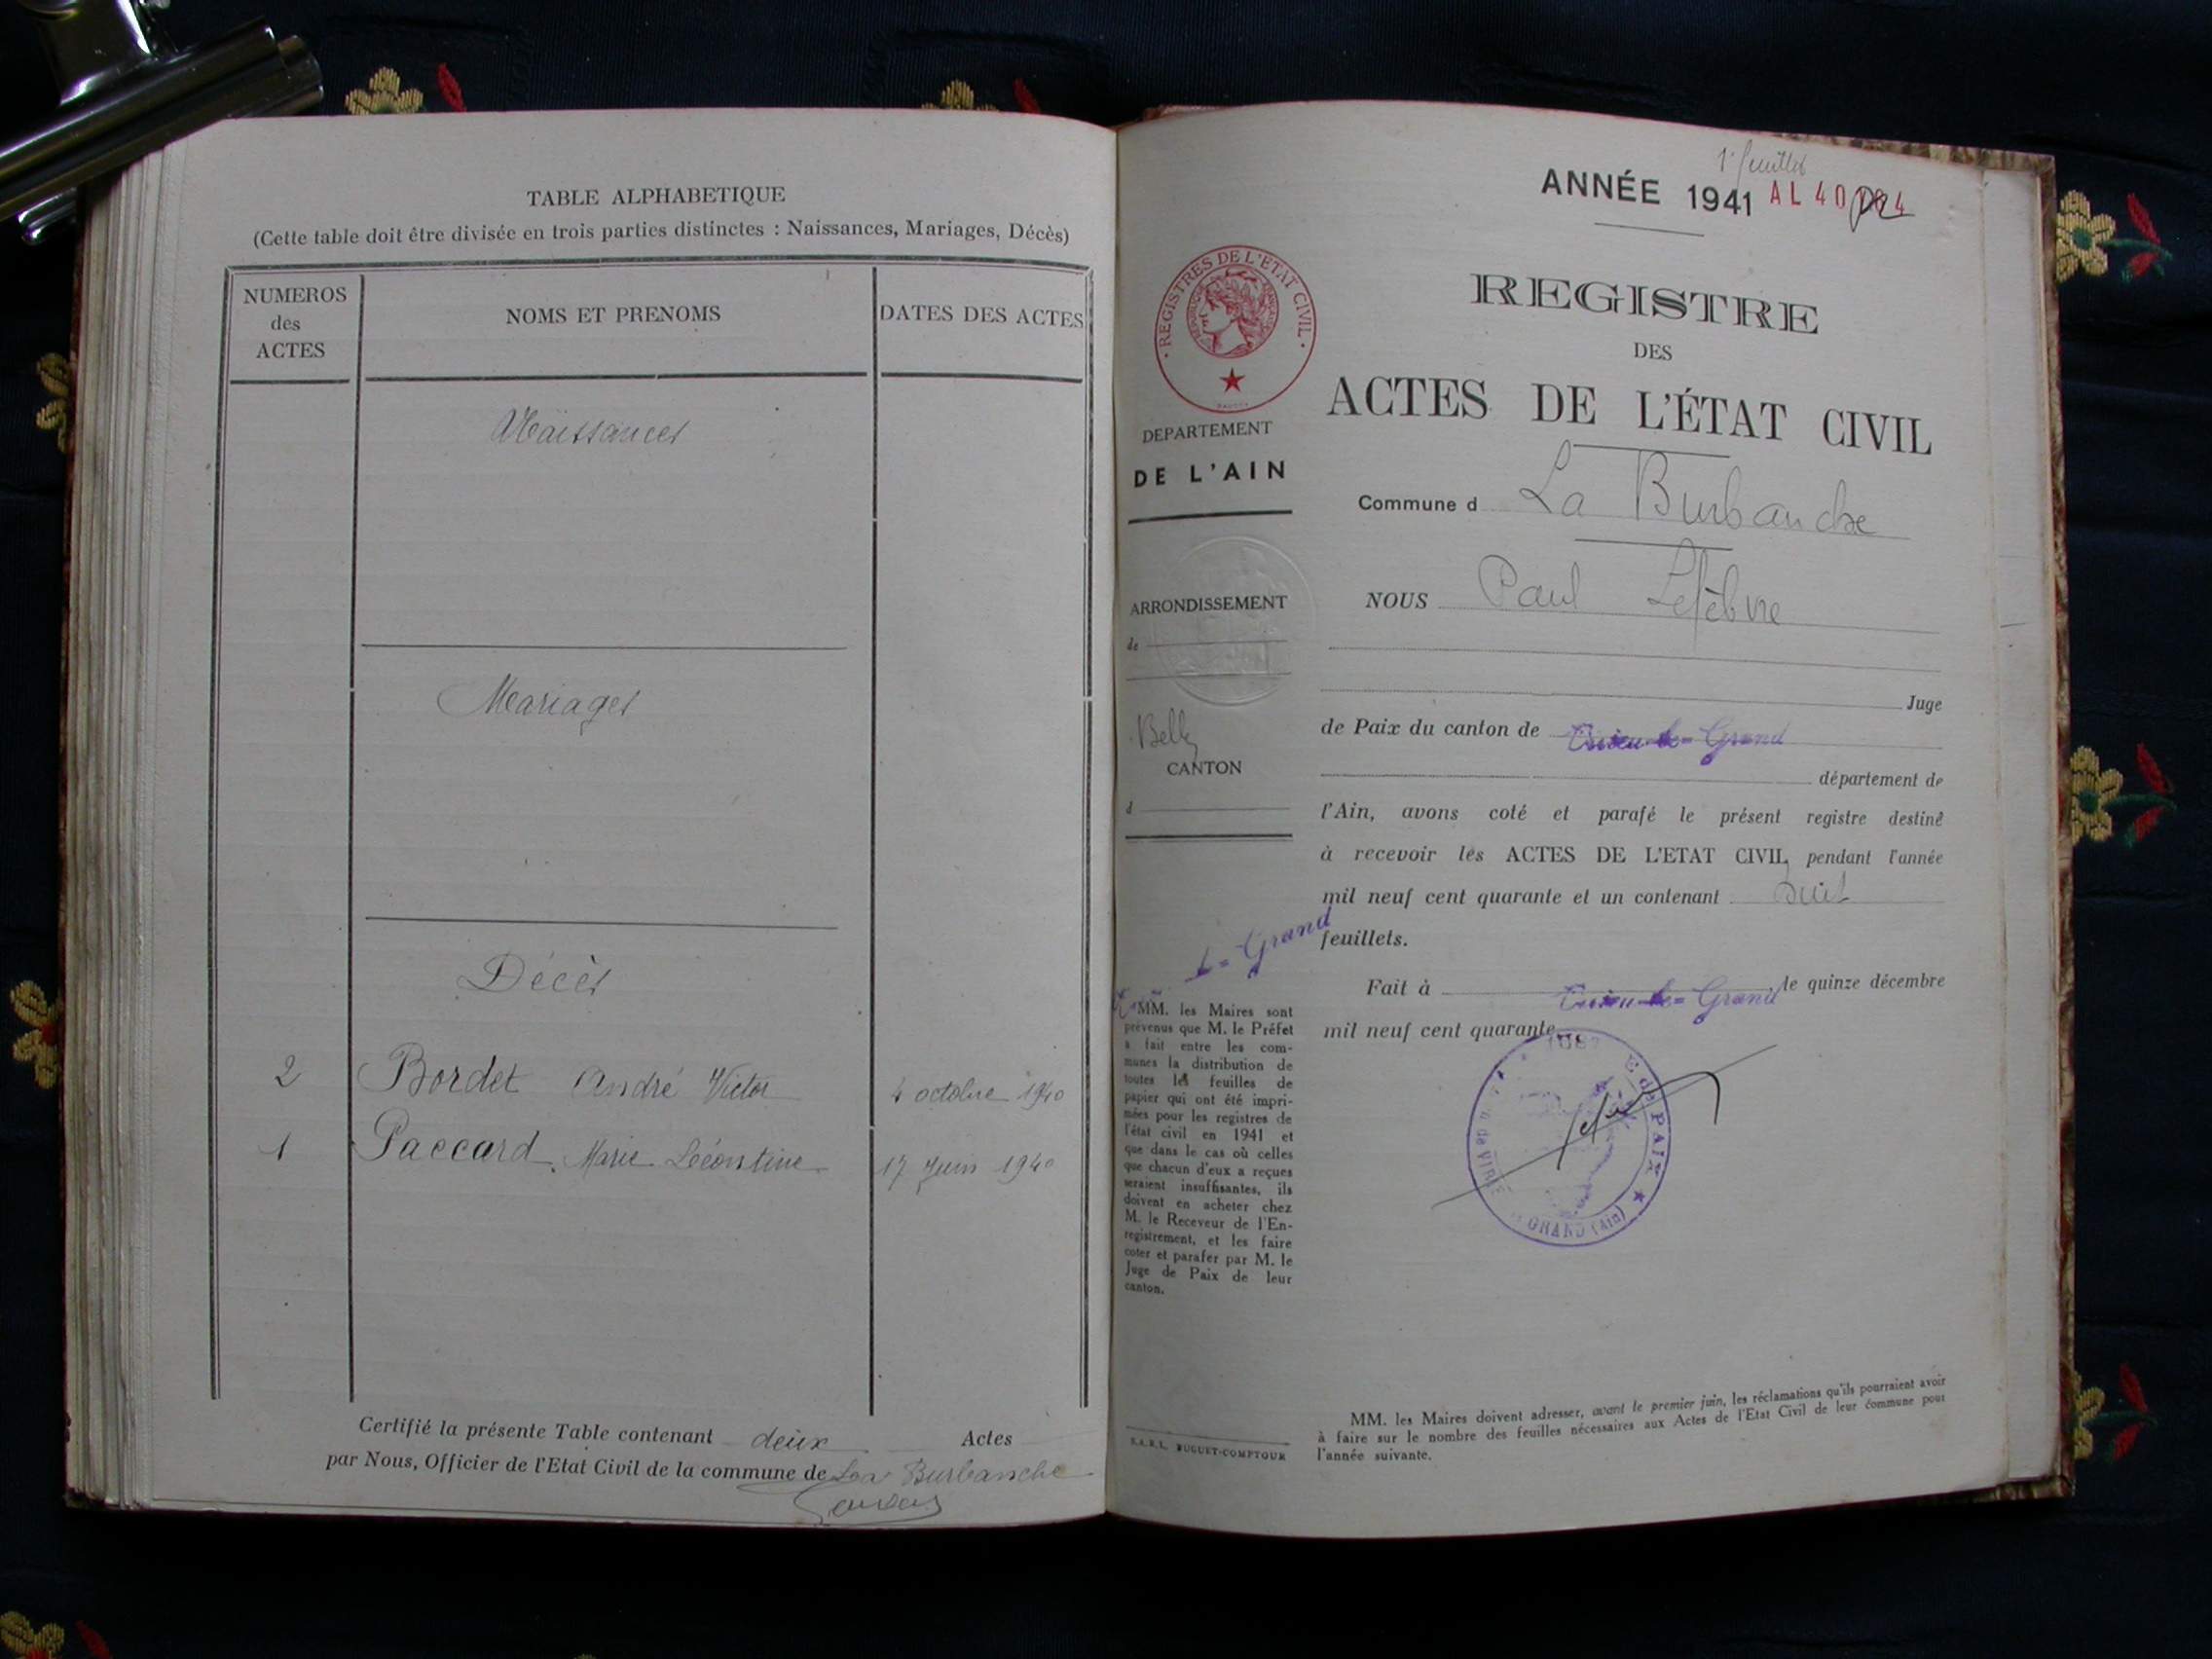 TABLE ALPHABETIQUE
(Cette table doit être divisée en trois parties distinctes : Naissances, Mariages, Décès)
NUMEROS
des
ACTES
NOMS ET PRENOMS
DATES DES ACTES
Naissances
Mariages
Décès
2 Bordet André Victor 4 octobre 1940
1 Paccard Marie Léontine 17 Juin 1940
Certifié la présente Table contenant deux Actes
par Nous, Officier de l'Etat Civil de la commune de La Burbanche
1er feuillet
ANNÉE 1941
AL 40
REGISTRES DE L'ETAT CIVIL
DEPARTEMENT
DE L'AIN
ARRONDISSEMENT
de
Belley
CANTON
d
le-Grand
MM. les Maires sont
prévenus que M. le Préfet
a fait entre les com-
munes la distribution de
toutes les feuilles de
papier qui ont été impri-
mées pour les registres de
l'état civil en 1941 et
que dans le cas où celles
que chacun d'eux a reçues
seraient insuffisantes, ils
doivent en acheter chez
M. le Receveur de l'En-
registrement, et les faire
coter et parafer par M. le
Juge de Paix de leur
canton.
S.A.R.L. BUGUET-COMPTOUR
REGISTRE
DES
ACTES DE L'ÉTAT CIVIL
Commune d La Burbanche
NOUS Paul Lefèbvre
Juge
de Paix du canton de Virieu-le-Grand
département de
l'Ain, avons coté et parafé le présent registre destiné
à recevoir les ACTES DE L'ETAT CIVIL pendant l'année
mil neuf cent quarante et un contenant huit
feuillets.
Fait à Virieu-le-Grand, le quinze décembre
mil neuf cent quarante.
DE PAIX
GRAND (Ain)
MM. les Maires doivent adresser, avant le premier juin, les réclamations qu'ils pourraient avoir
à faire sur le nombre des feuilles nécessaires aux Actes de l'Etat Civil de leur commune pour
l'année suivante.